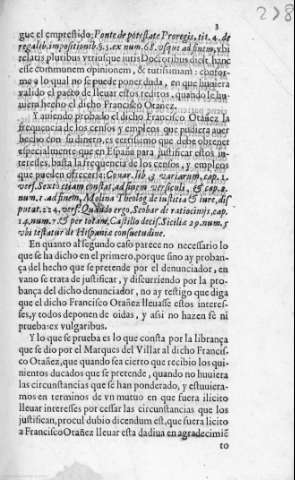 3
278
gue el emprestido: Ponte de potestate Proregis, tit. 4. de
regalib. impositionib. §. 5. ex num. 68. vsque ad finem, vbi
relatis pluribus vtriusque iuris Doctoribus dicit hanc
esse communem opinionem, & tutissimam: confor-
me a lo qual no se puede poner duda, en que huuiera
valido el pacto de lleuar estos reditos, quando le hu
uiera hecho el dicho Francisco Otañez.
Y auiendo probado el dicho Francisco Otañez la
frequencia de los censos y empleos que pudiera auer
hecho con su dinero, es certissimo que debe obtener
especialmente que en España para justificar estos in-
teresses, basta la frequencia de los censos, y empleos
que pueden ofrecerse: Couar. lib. 3. variarum, cap. 1.
vers. Sexto etiam constat, ad finem versiculi, & cap. 2.
num. 1. ad finem, Molina Theolog. de iustitia & iure, dis
putat. 224. vers. Quando ergo, Scobar de ratiocinijs, cap.
14. num. 7. & per totum, Castillo decis. Siciliæ 29. num. 7
vbi testatur de Hispaniæ consuetudine.
En quanto al segundo caso parece no necessario lo
que se ha dicho en el primero, porque sino ay proban-
ça del hecho que se pretende por el denunciador, en
vano se trata de justificar, y discurriendo por la pro-
bança del dicho denunciador, no ay testigo que diga
que el dicho Francisco Otañez lleuasse estos interes-
ses, y todos deponen de oidas, y assi no hazen fè ni
prueba ex vulgaribus.
Y lo que se prueba es lo que consta por la librança
que se dio por el Marques del Villar al dicho Francis-
co Otañez, que quando sea cierto que recibio los qui-
nientos ducados que se pretende, quando no huuiera
las circunstancias que se han ponderado, y estuuiera-
mos en terminos de vn mutuo en que fuera ilicito
lleuar interesses por cessar las circunstancias que los
justifican, procul dubio dicendum est, que fuera licito
a Francisco Otañez lleuar esta dadiua en agradecimiẽ
to